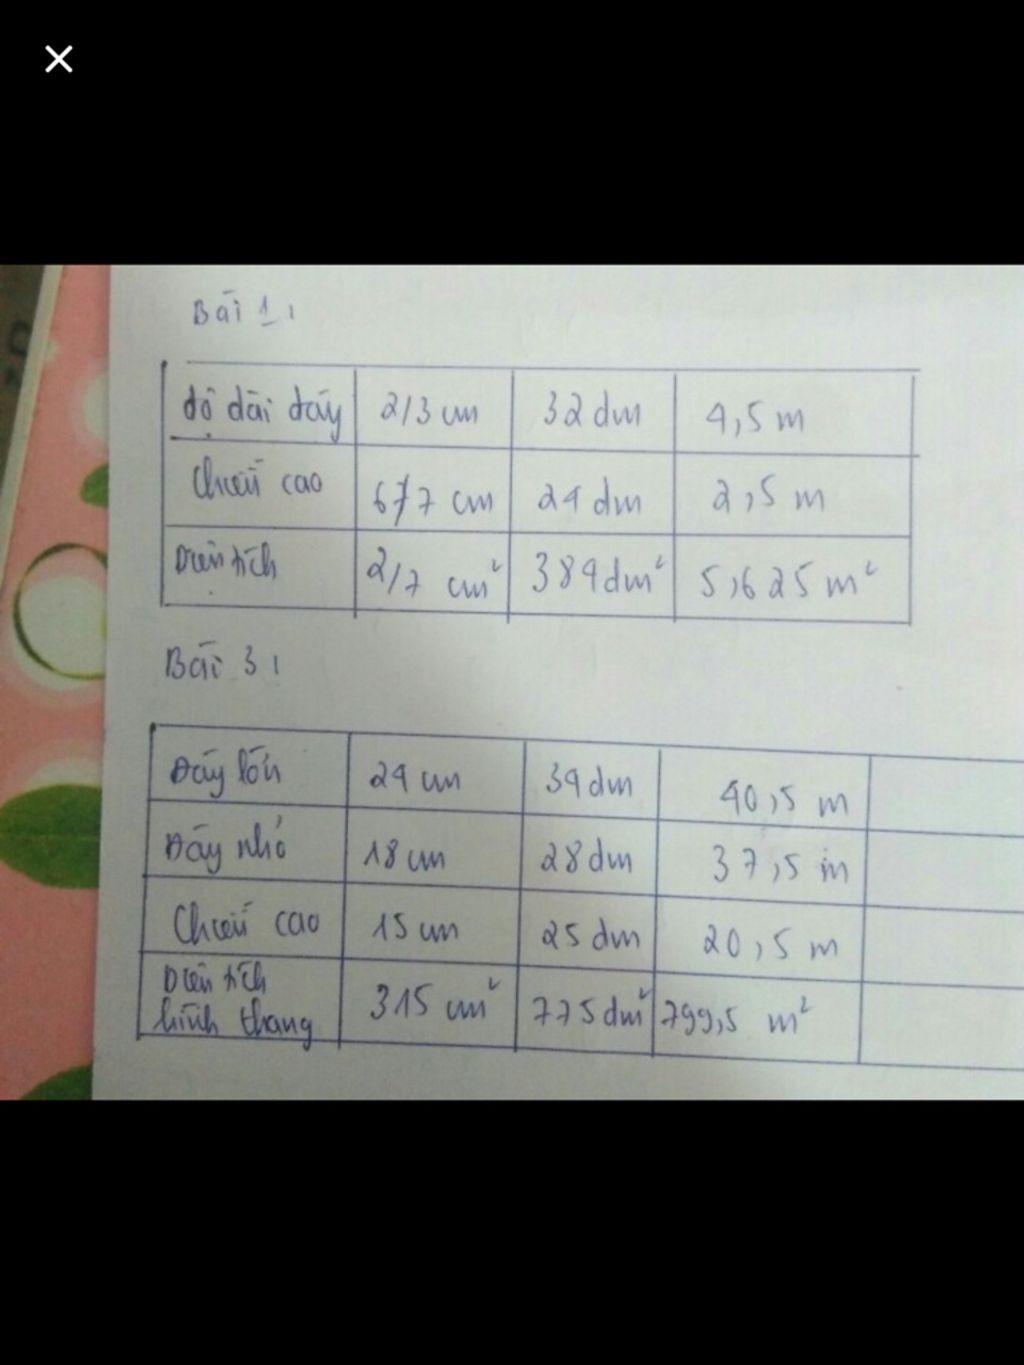 Bài 1:
độ dài đáy 2/3 cm 32 dm 4,5 m
Chiều cao 6/7 cm 24 dm 2,5 m
Diện tích 2/7 cm² 384 dm² 5,625 m²
Bài 3:
Đáy lớn 24 cm 34 dm 40,5 m
Đáy nhỏ 18 cm 28 dm 37,5 m
Chiều cao 15 cm 25 dm 20,5 m
Diện tích
hình thang 315 cm² 775 dm² 799,5 m²